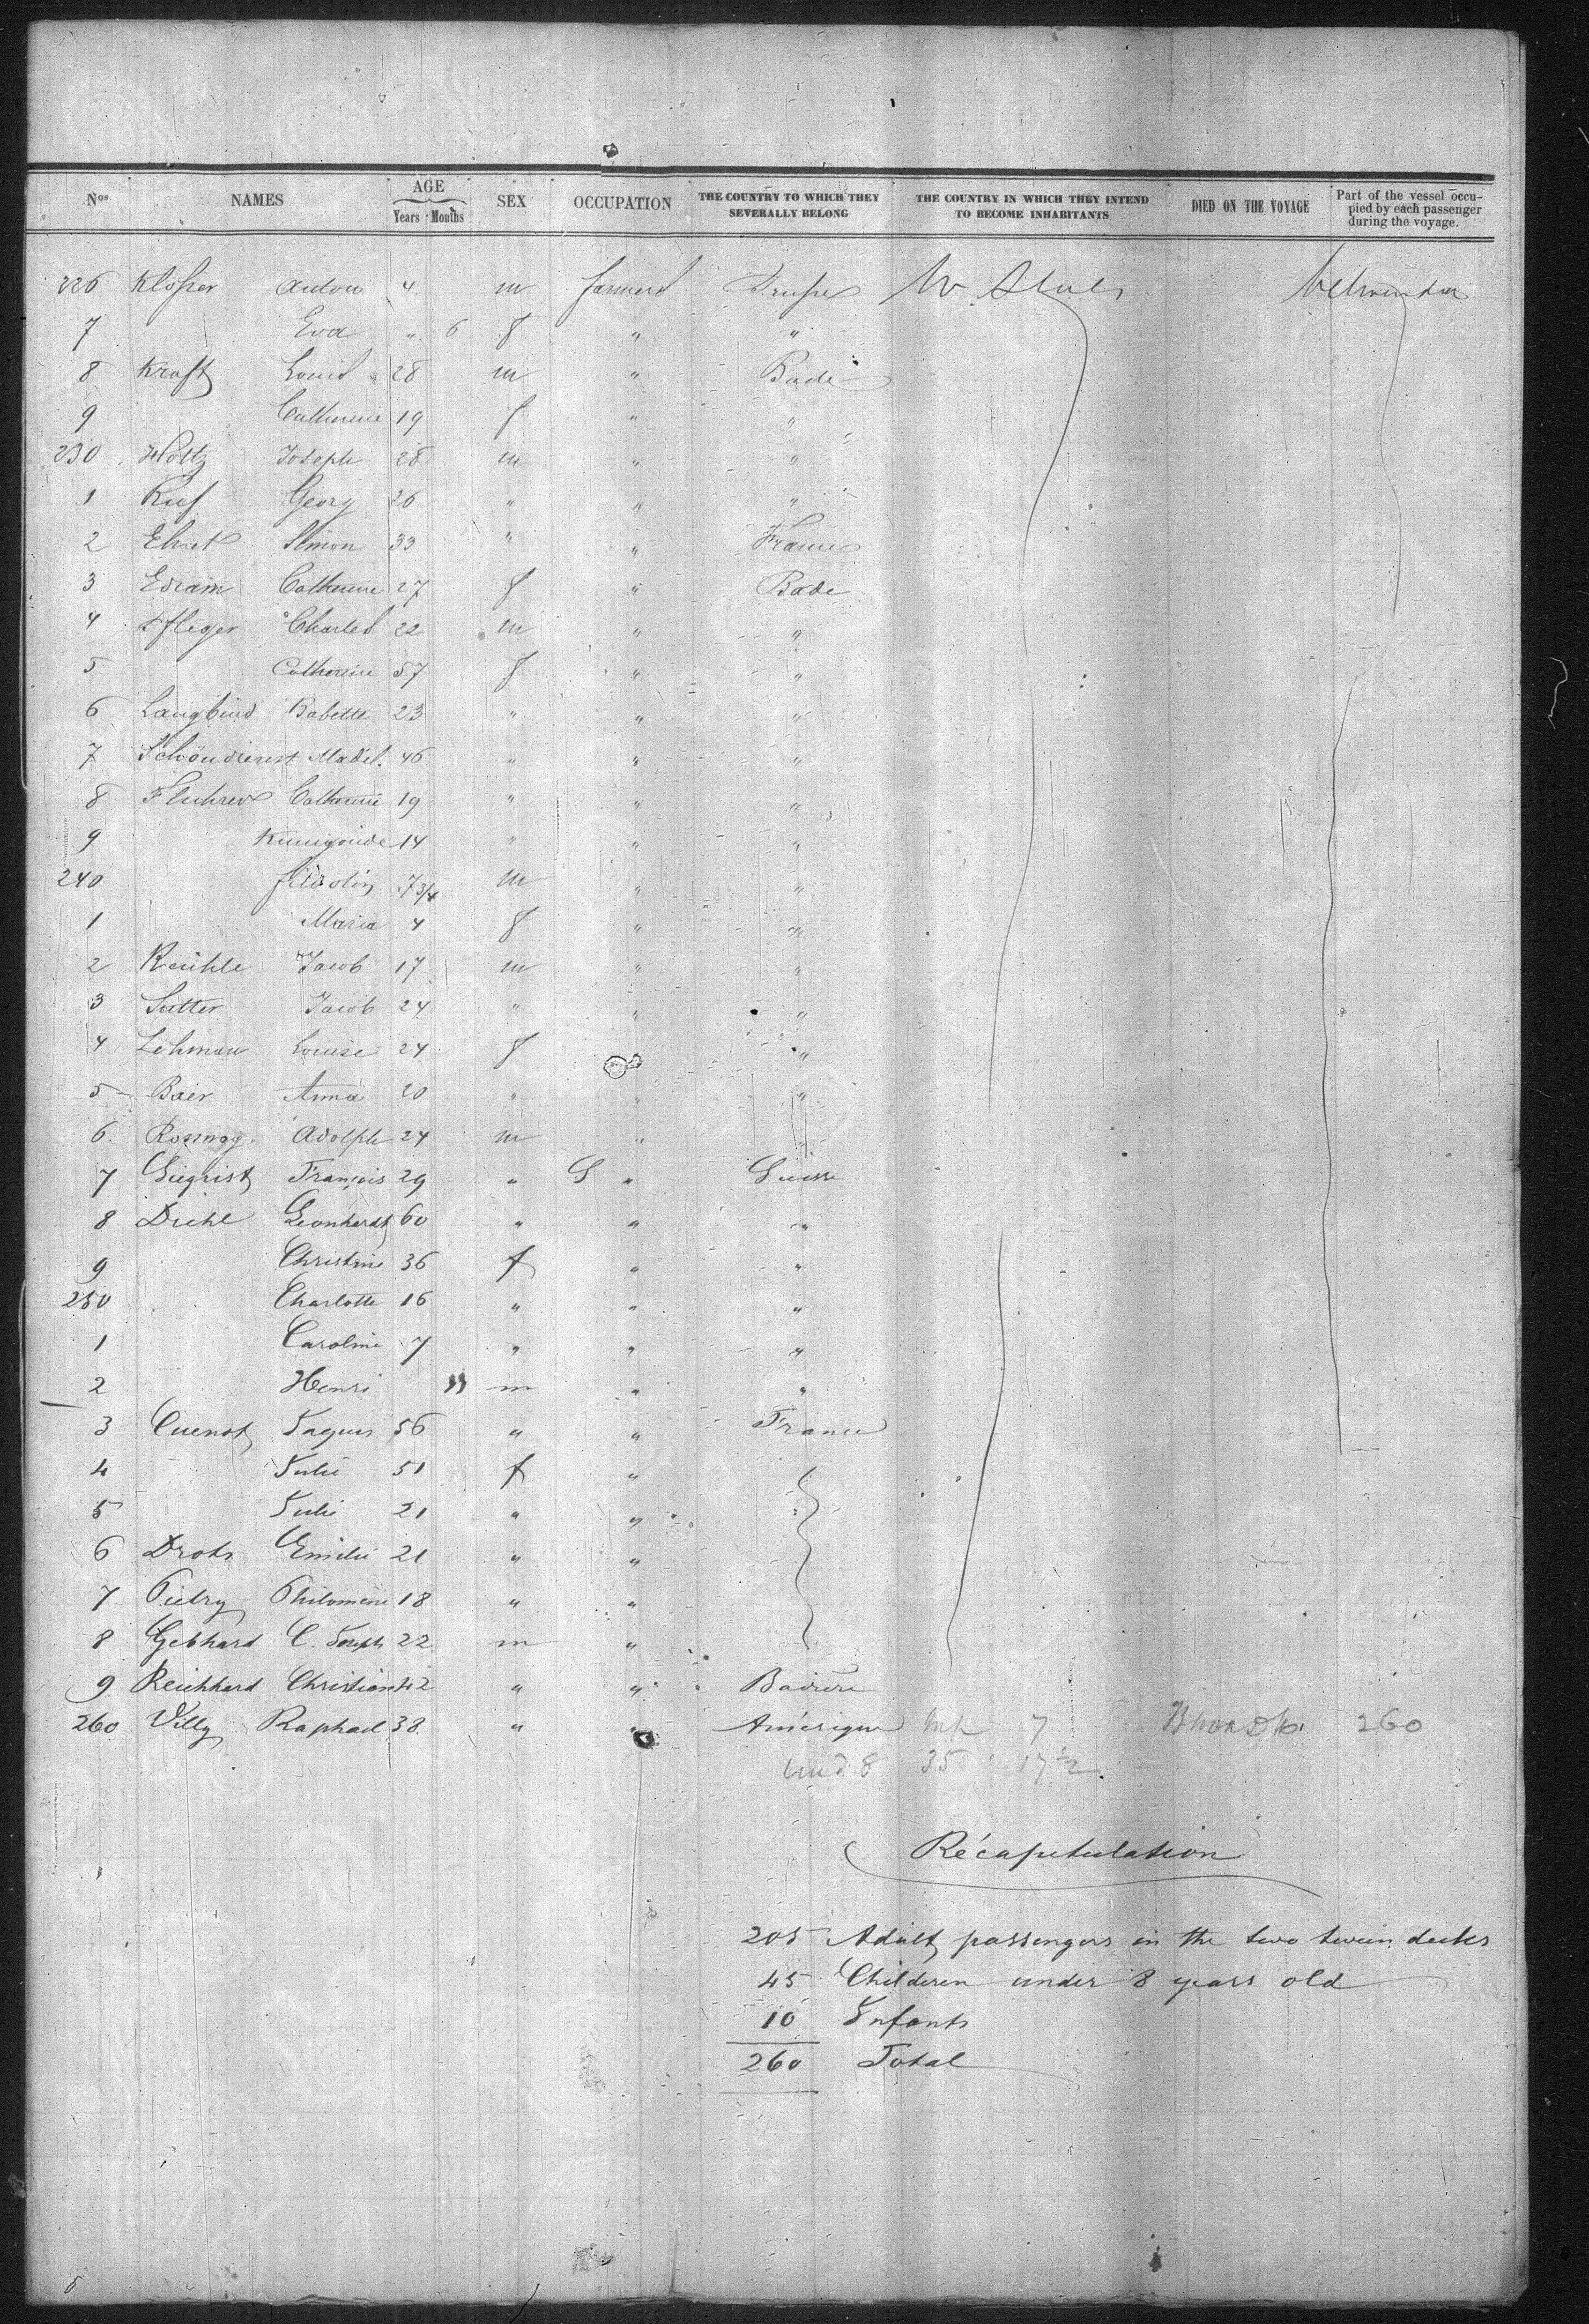 Nos NAMES AGE Years Months SEX OCCUPATION THE COUNTRY TO WHICH THEY SEVERALLY BELONG THE COUNTRY IN WHICH THEY INTEND TO BECOME INHABITANTS DIED ON THE VOYAGE Part of the vessel occupied by each passenger during the voyage.
226 Anton 4 m farmers Prusse
7 Eva " 6 f " "
8 Kraft Louis 28 m " Bade
9 Catherine 19 f " "
230 Höltz Joseph 28 m " "
1 Ruf Georg 26 " " "
2 Ehret Simon 33 " " France
3 Catherine 27 f " Bade
4 Pfleger Charles 22 m " "
5 Catherine 57 f " "
6 Babette 23 " " "
7 Schöndienst Madel. 46 " " "
8 Fluhrer Catherine 19 " " "
9 Kunigonde 14 " " "
240 7 3/4 m " "
1 Maria 4 f " "
2 Jacob 17 m " "
3 Sutter Jacob 24 " " "
4 Lehman Louise 24 f "
5 Baer Anna 20 " " "
6 Adolph 24 m " "
7 Siegrist François 29 " " Suisse
8 Diehl Leonhardt 60 " " "
9 Christine 36 f " "
250 Charlotte 16 " " "
1 Caroline 7 " " "
2 Henri 11 m " "
3 Cuenot Jaques 56 " " France
4 Julie 51 f "
5 Julie 21 " "
6 Emilie 21 " "
7 Philomene 18 " "
8 Gebhard C. Joseph 22 m "
9 Reichhard Christian 42 " " Bavière
260 Villy Raphael 38 " " Amérique Inf 7 260
und 8 35 17 1/2
Récapitulation
205 Adult passengers in the two tween decks
45 Children under 8 years old
10 Infants
260 Total